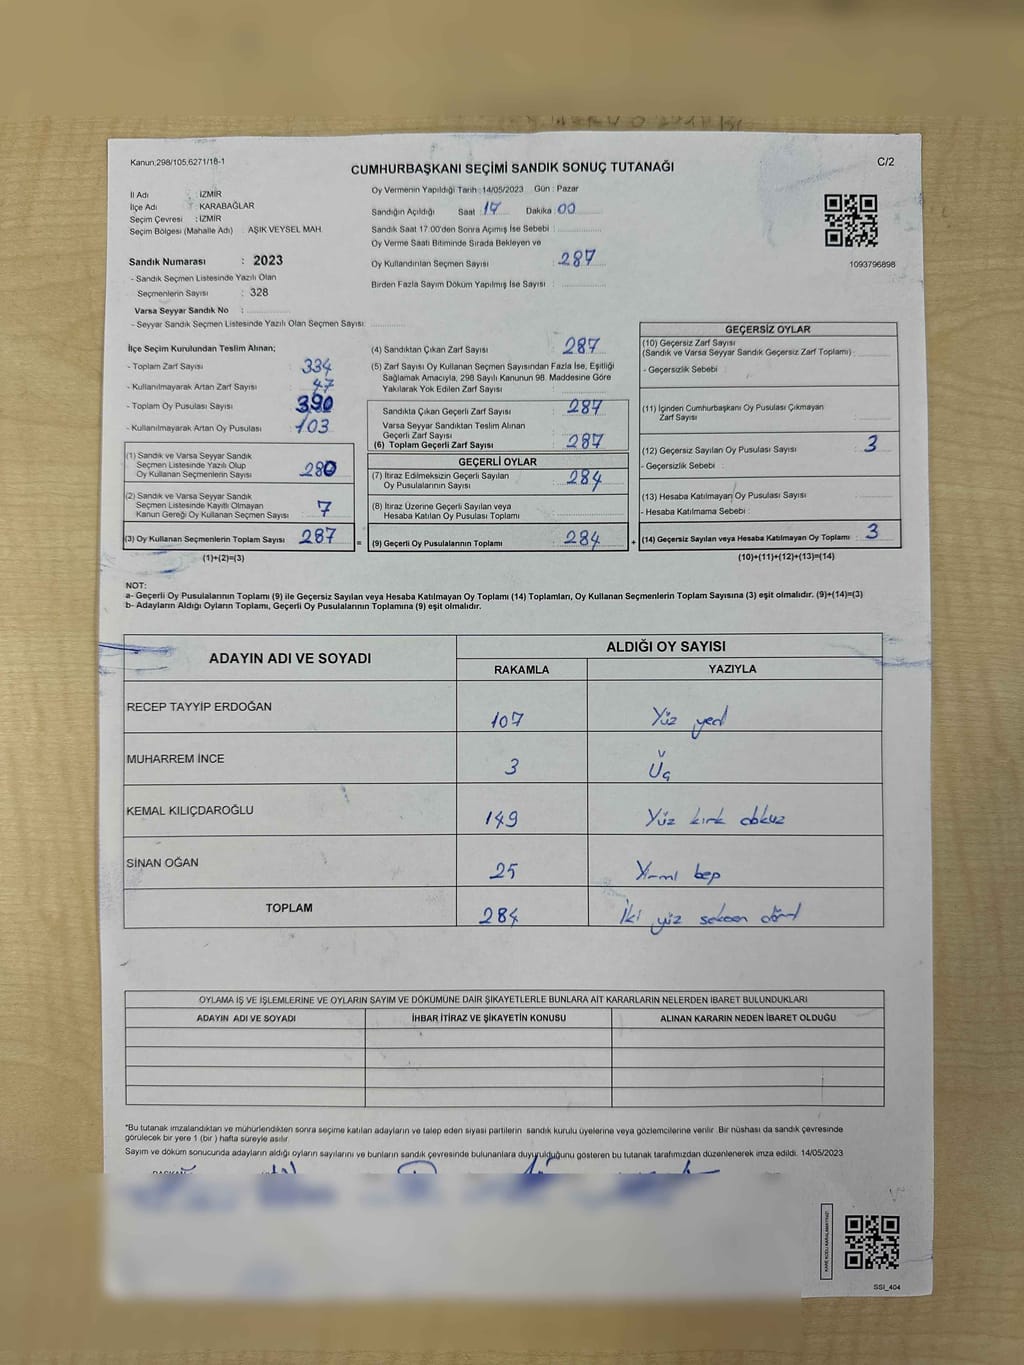 Kanun,298/105,6271/18-1
C/2
CUMHURBAŞKANI SEÇİMİ SANDIK SONUÇ TUTANAĞI
İl Adı : İZMİR
İlçe Adı : KARABAĞLAR
Seçim Çevresi : İZMİR
Seçim Bölgesi (Mahalle Adı) : AŞIK VEYSEL MAH.
Sandık Numarası : 2023
- Sandık Seçmen Listesinde Yazılı Olan
Seçmenlerin Sayısı : 328
Varsa Seyyar Sandık No :
- Seyyar Sandık Seçmen Listesinde Yazılı Olan Seçmen Sayısı:
Oy Vermenin Yapıldığı Tarih : 14/05/2023 Gün : Pazar
Sandığın Açıldığı Saat 17 Dakika 00
Sandık Saat 17.00'den Sonra Açımış İse Sebebi :
Oy Verme Saati Bitiminde Sırada Bekleyen ve
Oy Kullandırılan Seçmen Sayısı : 287
Birden Fazla Sayım Döküm Yapılmış İse Sayısı :
1093796898
İlçe Seçim Kurulundan Teslim Alınan;
- Toplam Zarf Sayısı : 334
- Kullanılmayarak Artan Zarf Sayısı : 47
- Toplam Oy Pusulası Sayısı : 390
- Kullanılmayarak Artan Oy Pusulası : 103
(1) Sandık ve Varsa Seyyar Sandık
Seçmen Listesinde Yazılı Olup
Oy Kullanan Seçmenlerin Sayısı : 280
(2) Sandık ve Varsa Seyyar Sandık
Seçmen Listesinde Kayıtlı Olmayan
Kanun Gereği Oy Kullanan Seçmen Sayısı : 7
(3) Oy Kullanan Seçmenlerin Toplam Sayısı : 287
(1)+(2)=(3)
(4) Sandıktan Çıkan Zarf Sayısı : 287
(5) Zarf Sayısı Oy Kullanan Seçmen Sayısından Fazla İse, Eşitliği
Sağlamak Amacıyla, 298 Sayılı Kanunun 98. Maddesine Göre
Yakılarak Yok Edilen Zarf Sayısı :
Sandıkta Çıkan Geçerli Zarf Sayısı : 287
Varsa Seyyar Sandıktan Teslim Alınan
Geçerli Zarf Sayısı :
(6) Toplam Geçerli Zarf Sayısı : 287
GEÇERLİ OYLAR
(7) İtiraz Edilmeksizin Geçerli Sayılan
Oy Pusulalarının Sayısı : 284
(8) İtiraz Üzerine Geçerli Sayılan veya
Hesaba Katılan Oy Pusulası Toplamı :
= (9) Geçerli Oy Pusulalarının Toplamı : 284 +
GEÇERSİZ OYLAR
(10) Geçersiz Zarf Sayısı
(Sandık ve Varsa Seyyar Sandık Geçersiz Zarf Toplamı) :
- Geçersizlik Sebebi :
(11) İçinden Cumhurbaşkanı Oy Pusulası Çıkmayan
Zarf Sayısı :
(12) Geçersiz Sayılan Oy Pusulası Sayısı : 3
- Geçersizlik Sebebi :
(13) Hesaba Katılmayan Oy Pusulası Sayısı :
- Hesaba Katılmama Sebebi :
(14) Geçersiz Sayılan veya Hesaba Katılmayan Oy Toplamı : 3
(10)+(11)+(12)+(13)=(14)
NOT:
a- Geçerli Oy Pusulalarının Toplamı (9) ile Geçersiz Sayılan veya Hesaba Katılmayan Oy Toplamı (14) Toplamları, Oy Kullanan Seçmenlerin Toplam Sayısına (3) eşit olmalıdır. (9)+(14)=(3)
b- Adayların Aldığı Oyların Toplamı, Geçerli Oy Pusulalarının Toplamına (9) eşit olmalıdır.
ADAYIN ADI VE SOYADI
ALDIĞI OY SAYISI
RAKAMLA YAZIYLA
RECEP TAYYİP ERDOĞAN 107 Yüz yedi
MUHARREM İNCE 3 Üç
KEMAL KILIÇDAROĞLU 149 Yüz kırk dokuz
SİNAN OĞAN 25 Yirmi beş
TOPLAM 284 İki yüz seksen dört
OYLAMA İŞ VE İŞLEMLERİNE VE OYLARIN SAYIM VE DÖKÜMÜNE DAİR ŞİKAYETLERLE BUNLARA AİT KARARLARIN NELERDEN İBARET BULUNDUKLARI
ADAYIN ADI VE SOYADI İHBAR İTİRAZ VE ŞİKAYETİN KONUSU ALINAN KARARIN NEDEN İBARET OLDUĞU
*Bu tutanak imzalandıktan ve mühürlendikten sonra seçime katılan adayların ve talep eden siyasi partilerin sandık kurulu üyelerine veya gözlemcilerine verilir. Bir nüshası da sandık çevresinde
görülecek bir yere 1 (bir ) hafta süreyle asılır.
Sayım ve döküm sonucunda adayların aldığı oyların sayılarını ve bunların sandık çevresinde bulunanlara duyurulduğunu gösteren bu tutanak tarafımızdan düzenlenerek imza edildi. 14/05/2023
SSI_404